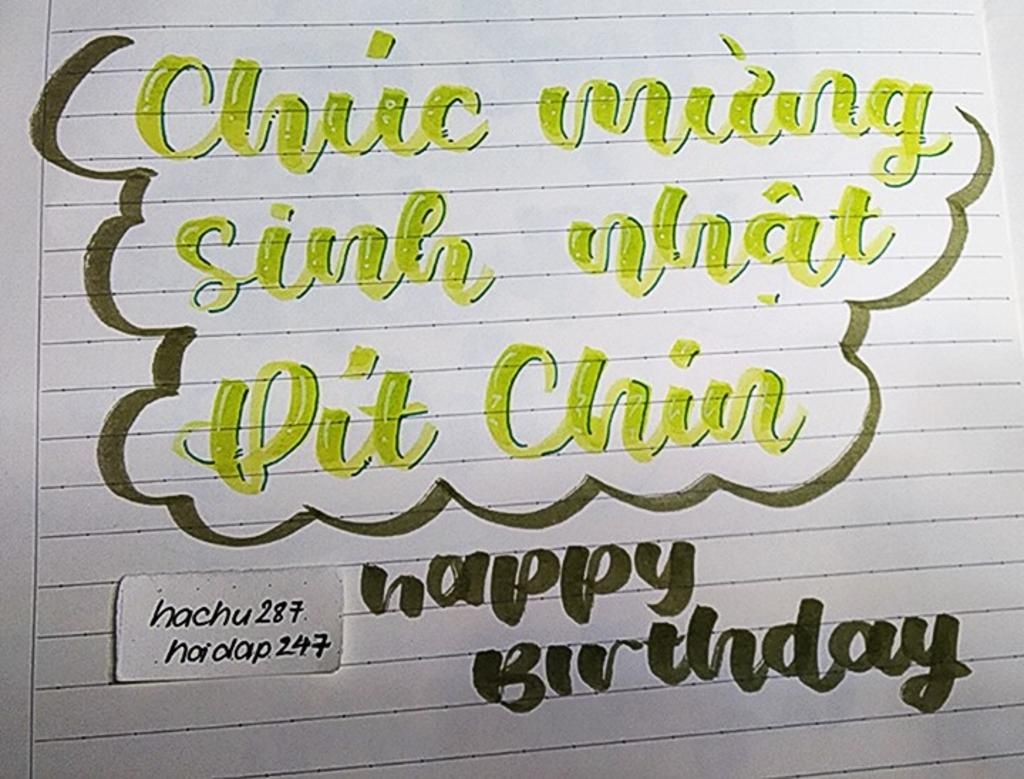 Chúc mừng
sinh nhật
Đít Chin
happy
Birthday
hachu287.
hoidap247